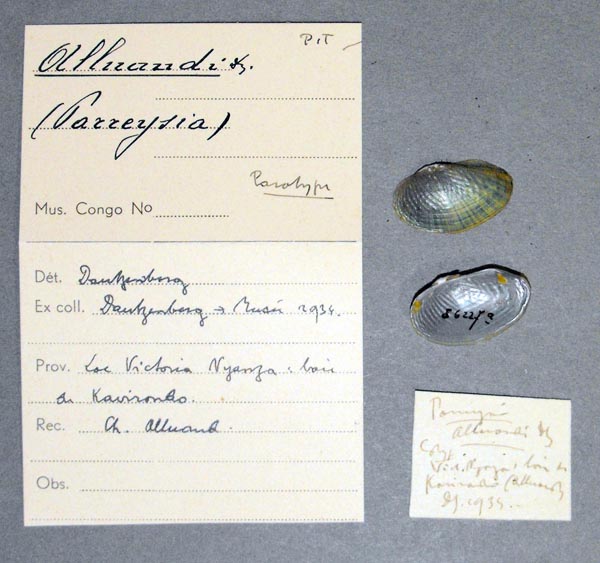 P.T
Alluaudi Dz.
(Parreysia)
Paratype
Mus. Congo No
Dét. Dautzenberg
Ex coll. Dautzenberg → Musée 1934.
Prov. Lac Victoria Nyanza : baie
de Kavirondo.
Rec. Ch. Alluaud.
Obs.
86227
Alluaudi Dz
Vict. Nyanza : baie de
Kavirondo (Alluaud)
Dz. 1934.